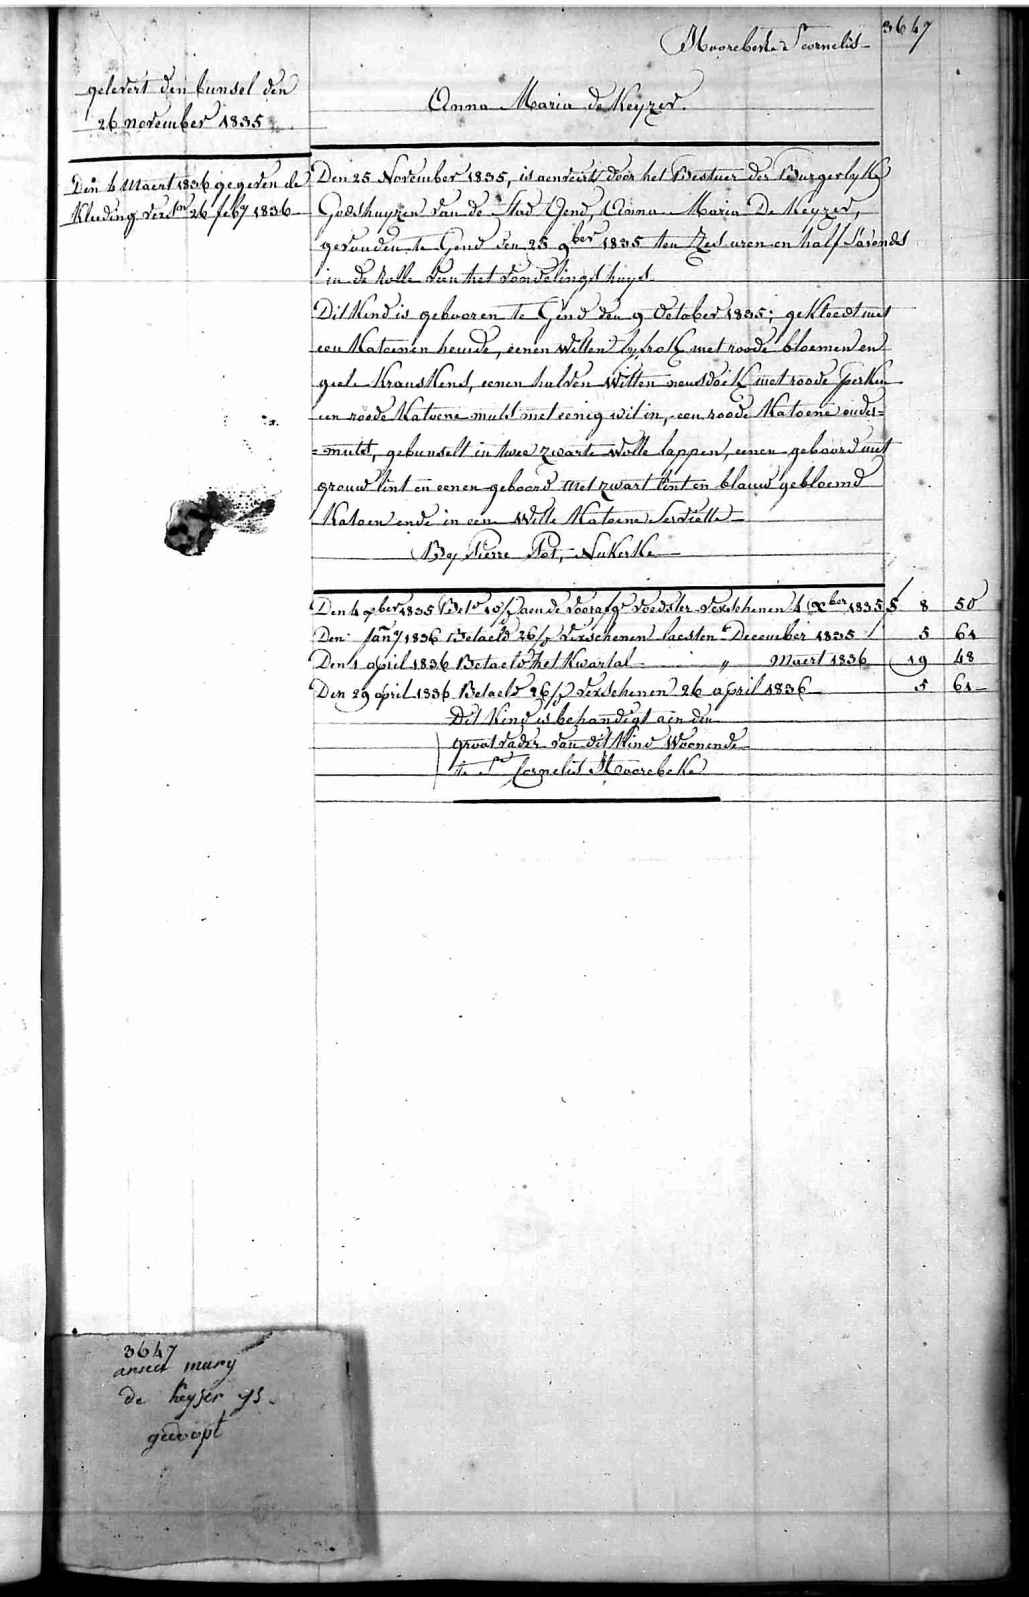 3647
Hoorebeke St Cornelis
gelevert den bunsel den
26 november 1835
Anna Maria de Keyzer.
Den 6 Maert 1836 gegeven de
Kleeding versn 26 feby 1836
Den 25 November 1835, is aenveirt door het Bestuer der Burgerlyke
Godshuyzen van de Stad Gend, Anna Maria De Keyzer,
gevonden te Gend den 25 9ber 1835 ten zes uren en half s'avonds
in de rolle van het vondelingshuys
Dit Kind is gebooren te Gend den 9 October 1835; gekleedt met
een Katoenen hemde, eenen witten lyfrok met roode bloemen en
geele Kranskens, eenen halven witten neusdoek met roode perken
een roode Katoene muts met eenig wit in, een roode Katoene onder=
=muts, gebunselt in twee zwarte wolle lappen, eenen geboord met
grouw lint en eenen geboord met zwart lint en blauw gebloemd
Katoen ende in eene witte Katoene Serviette
By Pierre Pot, Nukerke
Den 4 xber 1835 Bet. 10/ aen de voorafge voedster verschenen 4 xber 1835 5 8 50
Den Jany 1836 Betaeld 26/ verschenen laesten December 1835 5 61
Den 1 april 1836 Betaeld het Kwartal " Maert 1836 19 48
Den 29 april 1836 Betaeld 26/ verschenen 26 april 1836 5 61
Dit Kind is behandigt aen den
grootvader van dit Kind Woonende
te St Cornelis Hoorebeke
3647
anna mary
de keyser ys
gedoopt